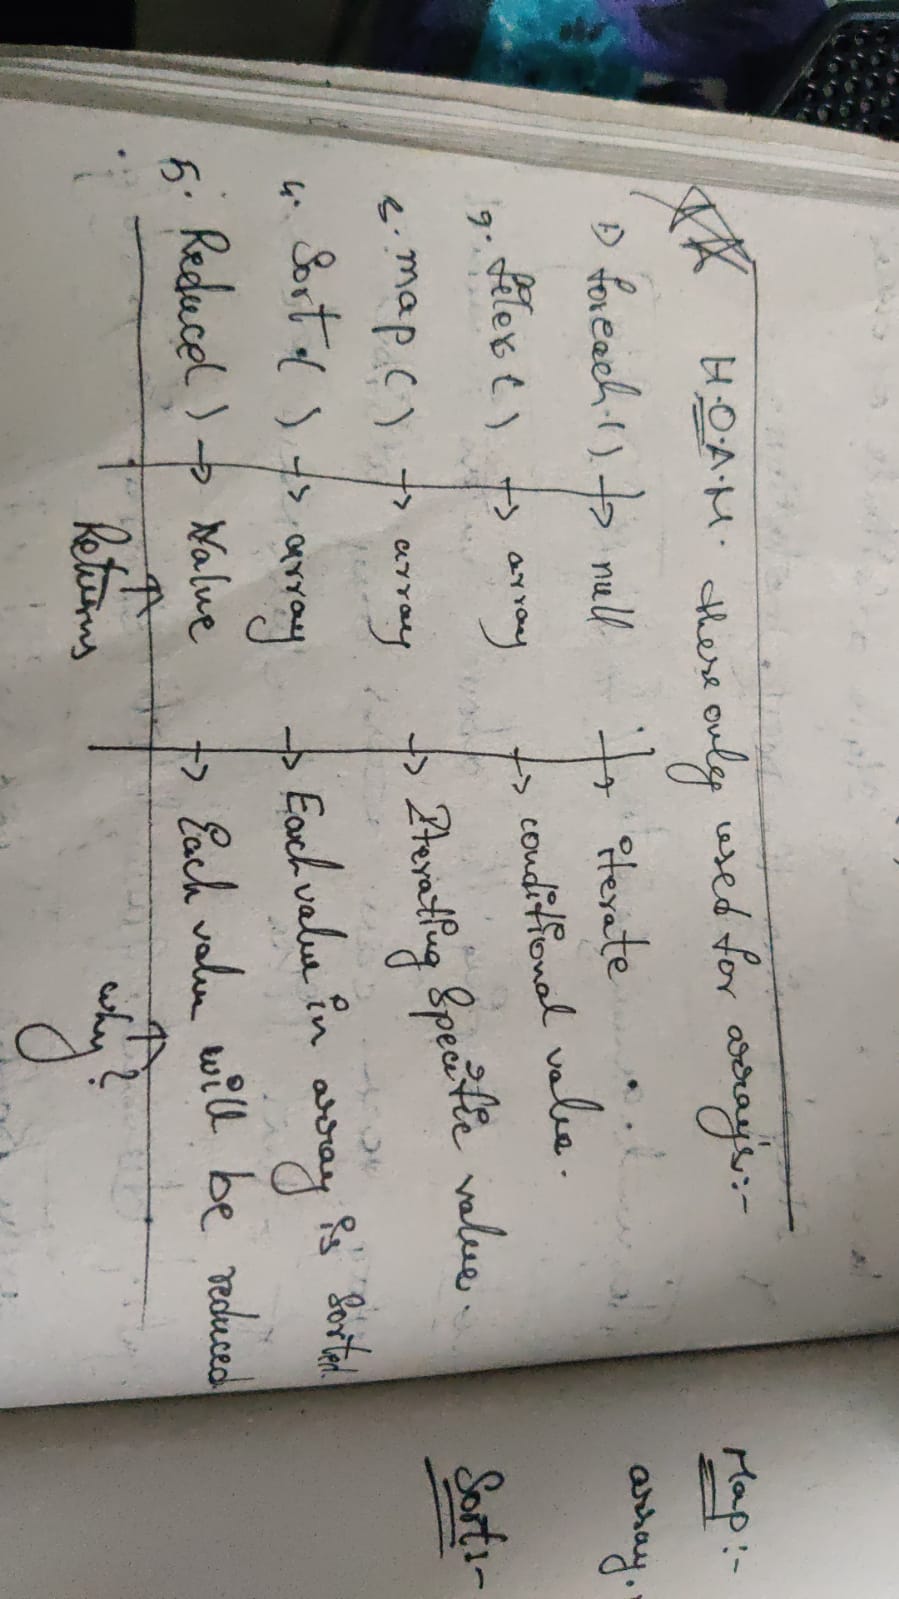 H.O.A.M. these only used for arrays:-
1) foreach.() → null → iterate
2. filter() → array → conditional value.
3. map() → array → Iterating specific value.
4. Sort() → array → Each value in array is sorted
5. Reduce() → Value → Each value will be reduced
Returns why?
Map:-
array.
Sort:-